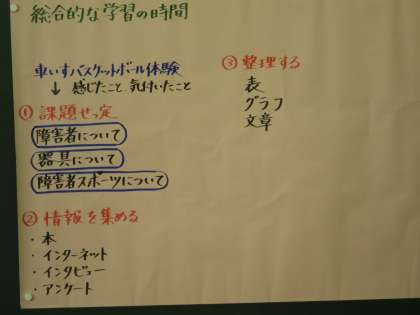 総合的な学習の時間
車いすバスケットボール体験
↓ 感じたこと 気付いたこと
① 課題せっ定
障害者について
器具について
障害者スポーツについて
② 情報を集める
・本
・インターネット
・インタビュー
・アンケート
③ 整理する
表
グラフ
文章